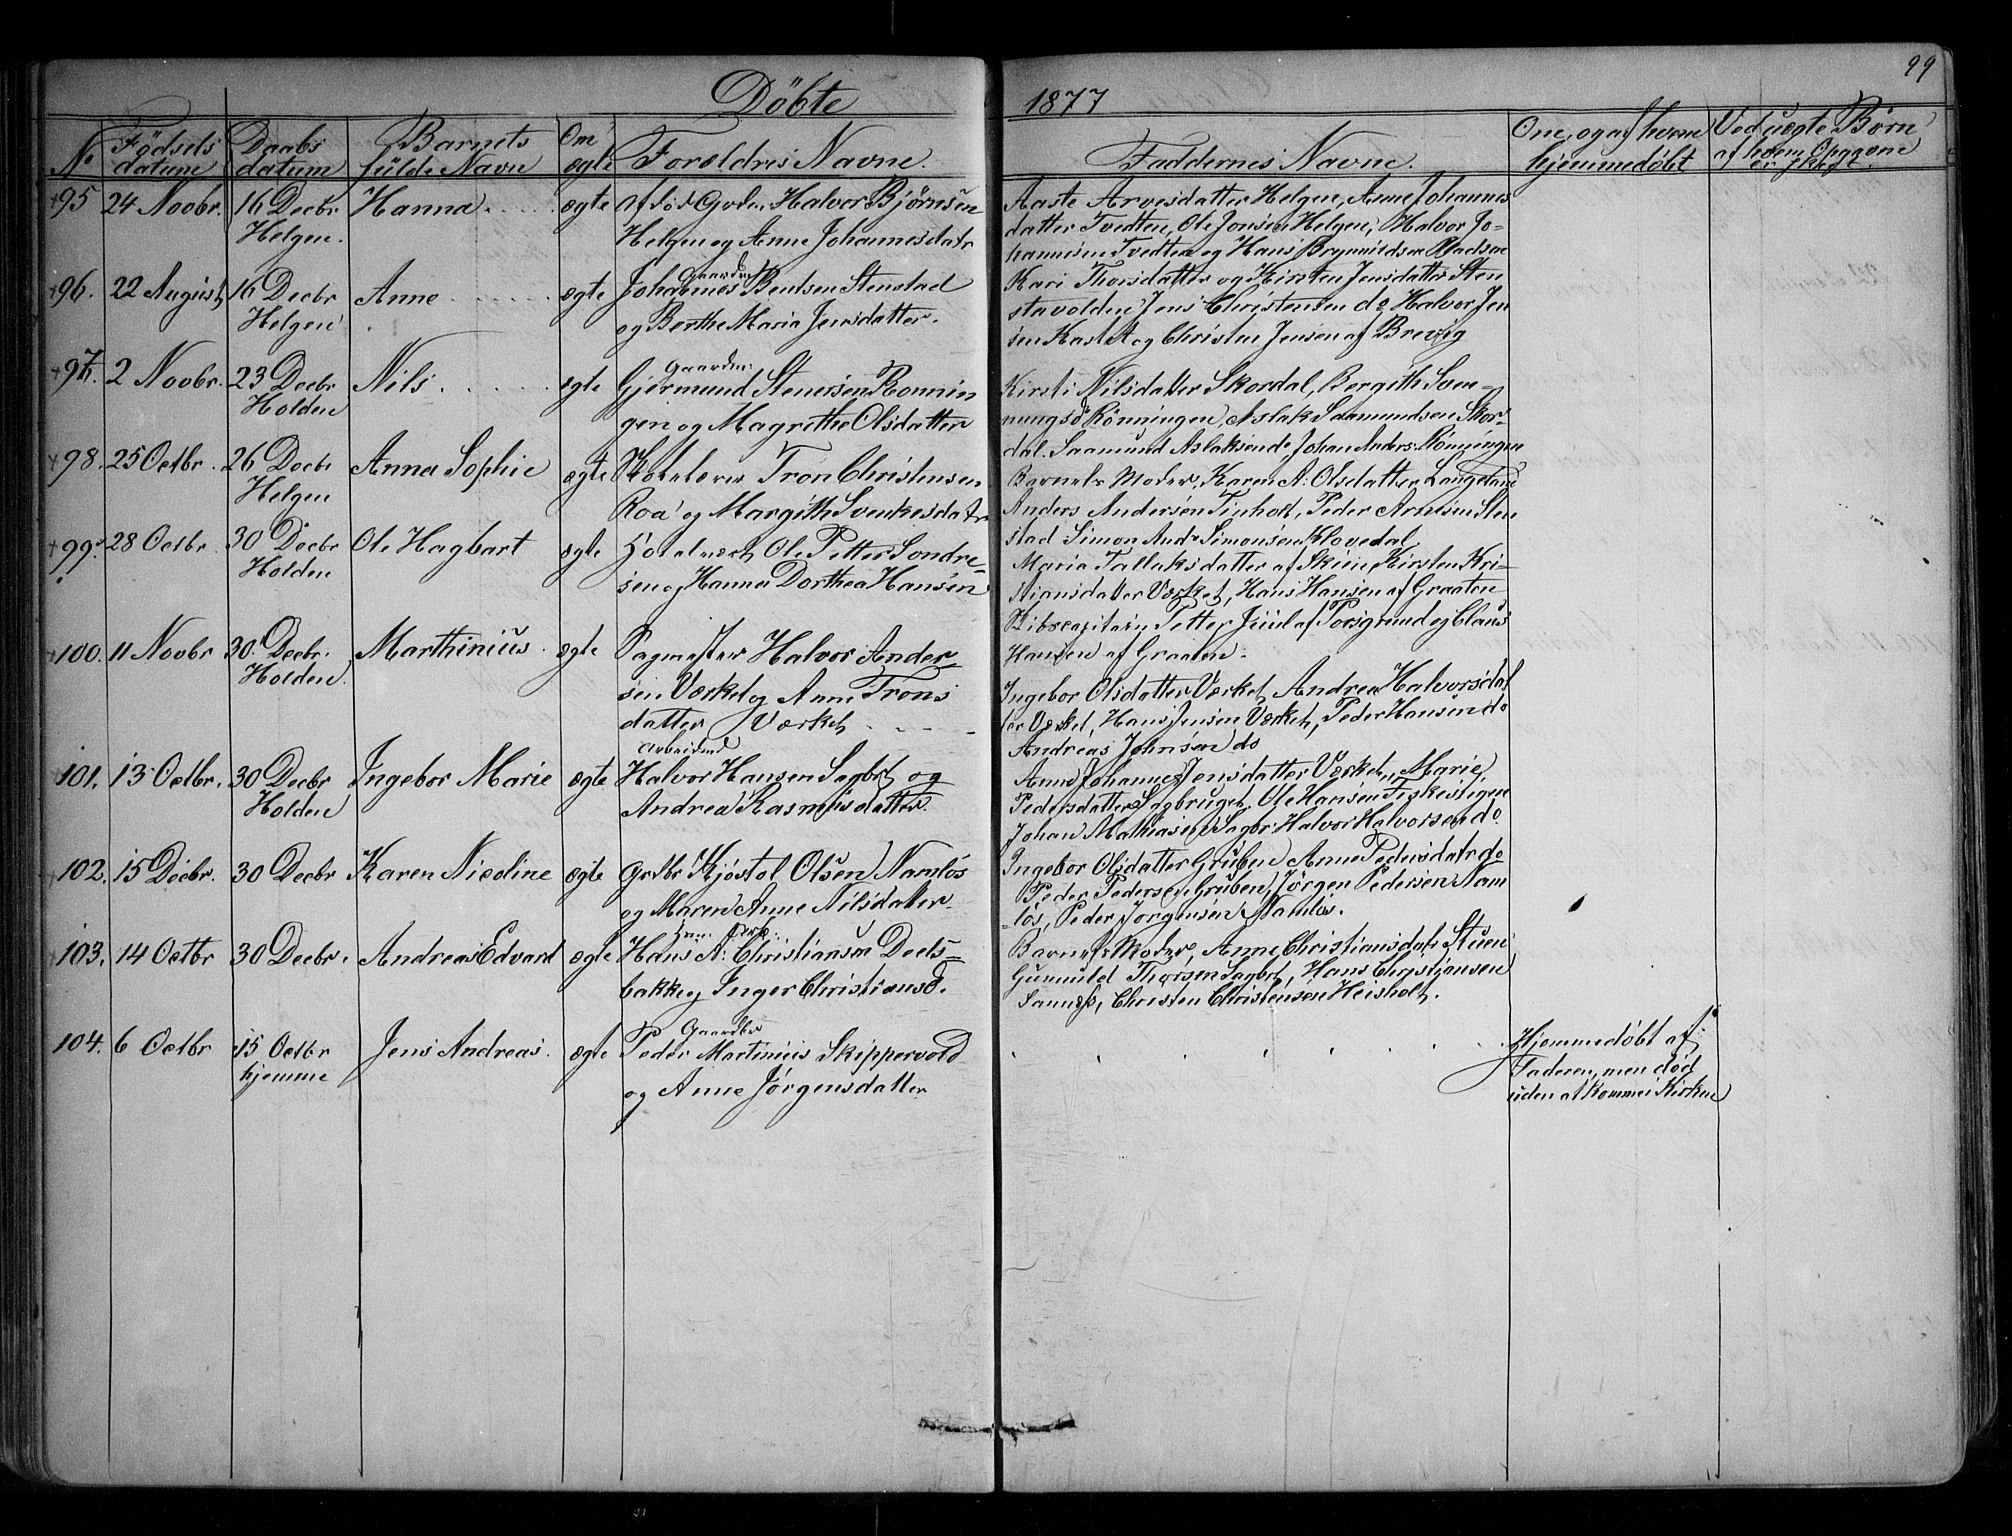 99
Döbte 1877
No Födsels datum Daabs datum Barnets fulde Navn Om ægte Forældres Navne. Faddernes Navne. Om, og af hvem hjemmedöbt Ved uægte Børn af hvem Opgaven er skeet.
95 24 Novbr. 16 Decbr Helgen. Hanna ægte Halvor Björnsen
Helgen og Anne Johannesdatr
Aaste Arvesdatter Helgen, Anne Johannes
datter Tvedten, Ole Jonsen Helgen, Halvor Jo-
hannesen Tvedten og Hans Brynnildsen Pladsen
96. 22 August 16 Decbr Helgen Anne ægte Gaardm
Johannes Bentsen Stenstad
og Berthe Maria Jensdatter.
Kari Thorsdatter og Kirsten Jensdatter Sten
stavolden Jens Christensen do Halvor Jen
sen Kastet og Christen Jensen af Brevig
97. 2 Novbr. 23 Decbr Holden Nils ægte Gaardm.
Gjermund Stenersen Rønnin
gen og Magrethe Olsdatter
Kirsti Nilsdatter Skordal, Bergith Sven-
nungsd Rönningen, Aslak Saamundsen Skor-
dal. Saamund Aslaksen do Johan Anders. Rönningen
98. 25 Octbr. 26 Decbr Helgen Anna Sophie ægte Tron Christensen
Roa og Margith Svenkesdatr
Barnets Moder, Karen A. Olsdatter Langeland
Anders Andersen Tinholt, Peder Arnesen Sten
stad Simon Andr Simonsen Klovedal
99. 28 Octbr. 30 Decbr Holden Ole Hagbart ægte Hotelvært Ole Petter Sondre-
sen og Hanna Dorthea Hansen
Maria Tallaksdatter af Skien, Kirsten Kri-
stiansdatter Værket, Hans Hansen af Graaten
Skibscapitein Petter Juul af Porsgrund og Claus
Hansen af Graaten.
100. 11 Novbr 30 Decbr. Holden. Marthinius. ægte Halvor Ander-
sen Værket og Anne Trons
datter Værket
Ingebor Olsdatter Værket, Andrea Halvorsdat
ter Værket, Hans Jensen Værket, Peder Hansen do
Andreas Johnsen do
101. 13 Octbr. 30 Decbr Holden Ingebor Marie ægte Arbeidsmd
Halvor Hansen Sagbrt og
Andrea Rasmusdatter.
Anne Johanne Jensdatter Værket, Marie
Pedersdatter Sagbruget. Ole Hansen Fiskestigen
Johan Mathiasen Sagbr Halvor Halvorsen do
102. 15 Decbr. 30 Decbr Karen Nicoline ægte Grdbr Kjøstol Olsen Namlös
og Maren Anne Nilsdatter.
Ingebor Olsdatter Gruben, Anne Pedersdatr do
Peder Pedersen Gruben, Jörgen Pedersen Nam
lös, Peder Jörgensen Namlös.
103. 14 Octbr 30 Decbr. Andreas Edvard ægte
Hans A. Christiansen Deels-
bakke og Inger Christiansd.
Barnets Moder, Anne Christiansdatr Stuen
Gunnuld Thorsen Sagbrt, Hans Christiansen
Sannæss, Christen Christensen Heisholt.
104. 6 Octbr 15 Octbr hjemme Jens Andreas. ægte Gaardbr
Peder Martinius Skippervold
og Anne Jörgensdatter
Hjemmedöbt af
Faderen, men död
uden at komme i Kirken